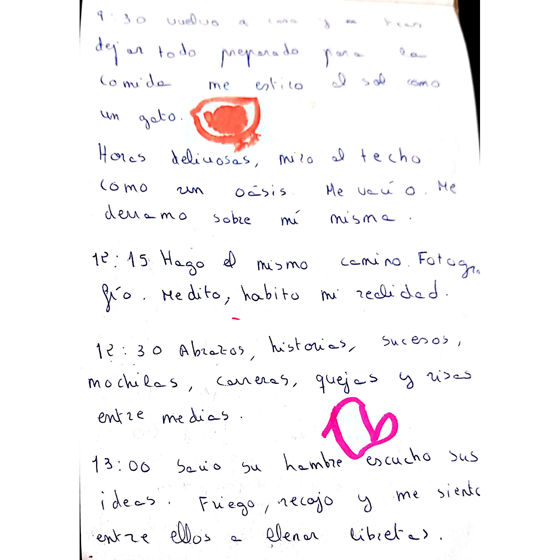 9:30 vuelvo a casa y
dejar todo preparado para la
comida me estiro al sol como
un gato.
Horas deliciosas, miro al techo
como un oásis. Me vacío. Me
derramo sobre mí misma.
12:15 Hago el mismo camino. Fotogra
fío. Medito, habito mi realidad.
12:30 Abrazos, historias, sucesos,
mochilas, carreras, quejas y risas
entre medias.
13:00 Sacio su hambre escucho sus
ideas. Friego, recojo y me siento
entre ellos a llenar libretas.